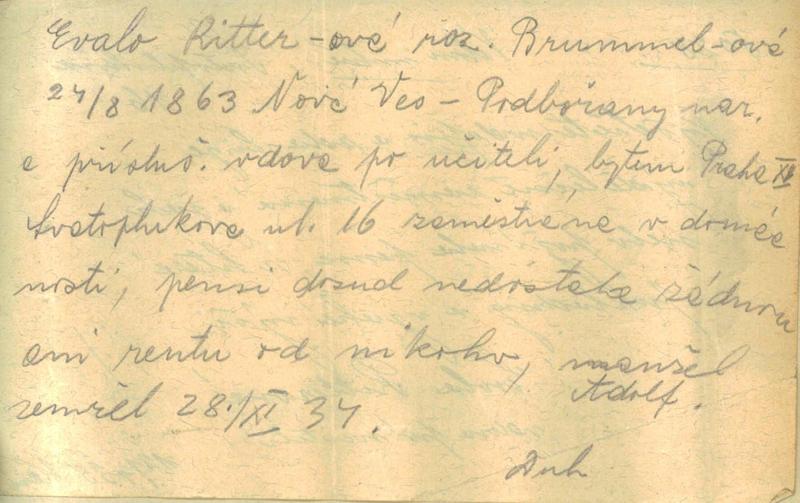 Evalo Ritter-ová roz. Brummel-ová
24/8 1863 Nová Ves - Podbořany nar.
a příslůš. vdova po učiteli, bytem Praha XII
Svatoplukova ul. 16 zaměstnána v domác
nosti, pensi dosud nedostala žádnou
ani rentu od nikoho, manžel
Adolf.
zemřel 28./XI 34.